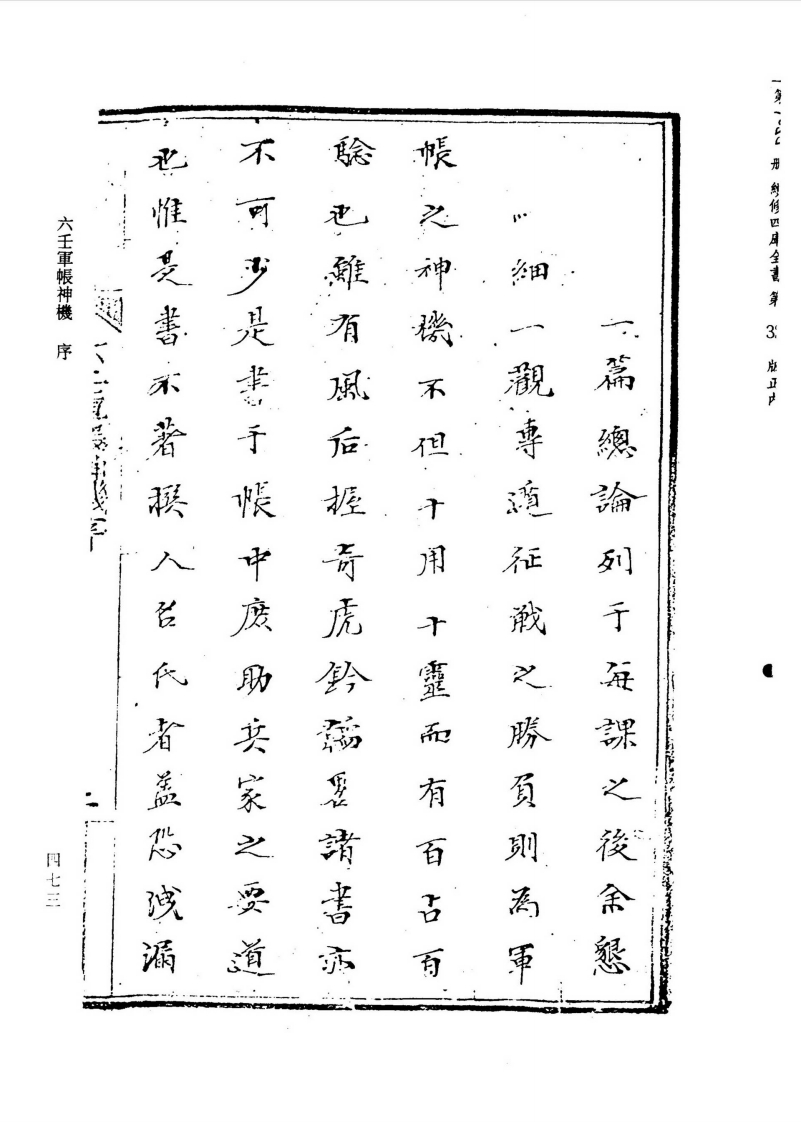 一篇總論列于每課之後余懇
細一觀專造征戰之勝負則為軍
帳之神機不但十用十靈而有百占百
驗也雖有風后握奇虎鈐諸書亦
不可少是書于帳中庶助兵家之要道
也惟是書不著撰人名氏者蓋恐洩漏
六壬軍帳神機 序
四七三
冊 續修四庫全書 第